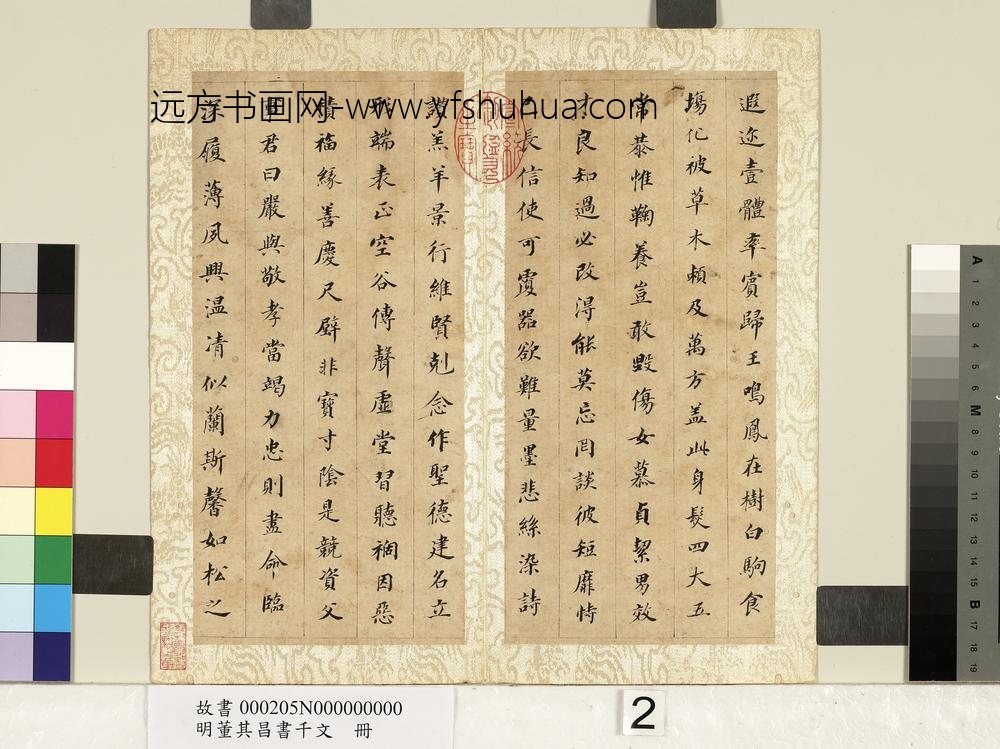 远方书画网-www.yfshuhua.com
遐迩壹體率賓歸王鳴鳳在樹白駒食
塲化被草木頼及萬方盖此身髮四大五
常恭惟鞠養豈敢毀傷女慕貞絜男效
才良知過必改得能莫忘罔談彼短靡恃
己長信使可覆器欲難量墨悲絲染詩
讚羔羊景行維賢剋念作聖德建名立
形端表正空谷傳聲虛堂習聽禍因惡
積福緣善慶尺璧非寶寸陰是競資父
事君曰嚴與敬孝當竭力忠則盡命臨
深履薄夙興温凊似蘭斯馨如松之
A 1 2 3 4 5 6 M 8 9 10 11 12 13 14 15 B 17 18 19
故書 000205N000000000
明董其昌書千文 冊
2